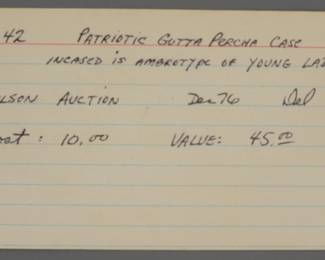 42 PATRIOTIC GUTTA PERCHA CASE
INCASED IS AMBROTYPE OF YOUNG LA
LSON AUCTION Dec 76 Del
ost: 10.00 VALUE: 45.00